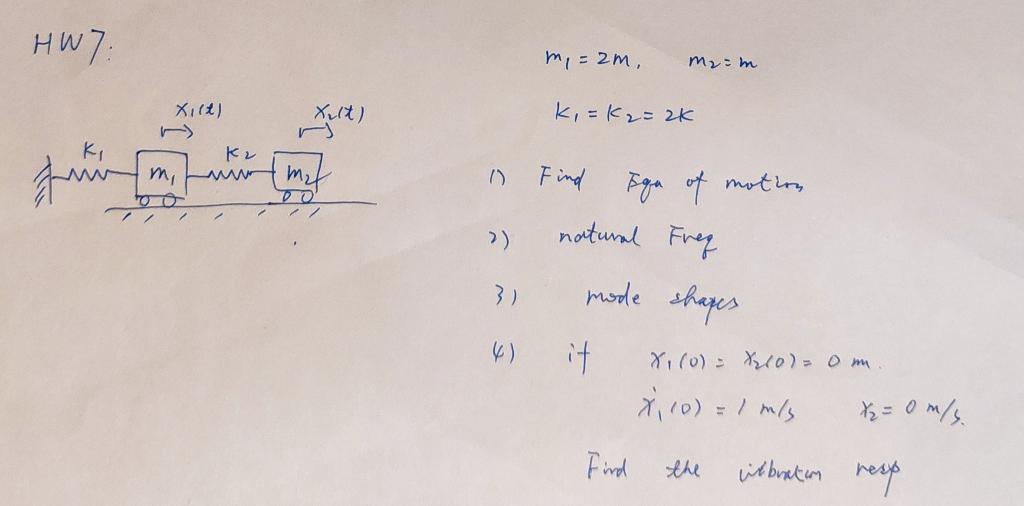 HW7:
x₁(t) x₂(t)
K₁ K₂
m₁ m₂
m₁ = 2m, m₂ = m
K₁ = K₂ = 2K
1) Find Equ of motion
2) natural Freq
3) mode shapes
4) if x₁(0) = x₂(0) = 0 m.
ẋ₁(0) = 1 m/s ẋ₂ = 0 m/s.
Find the vibration resp